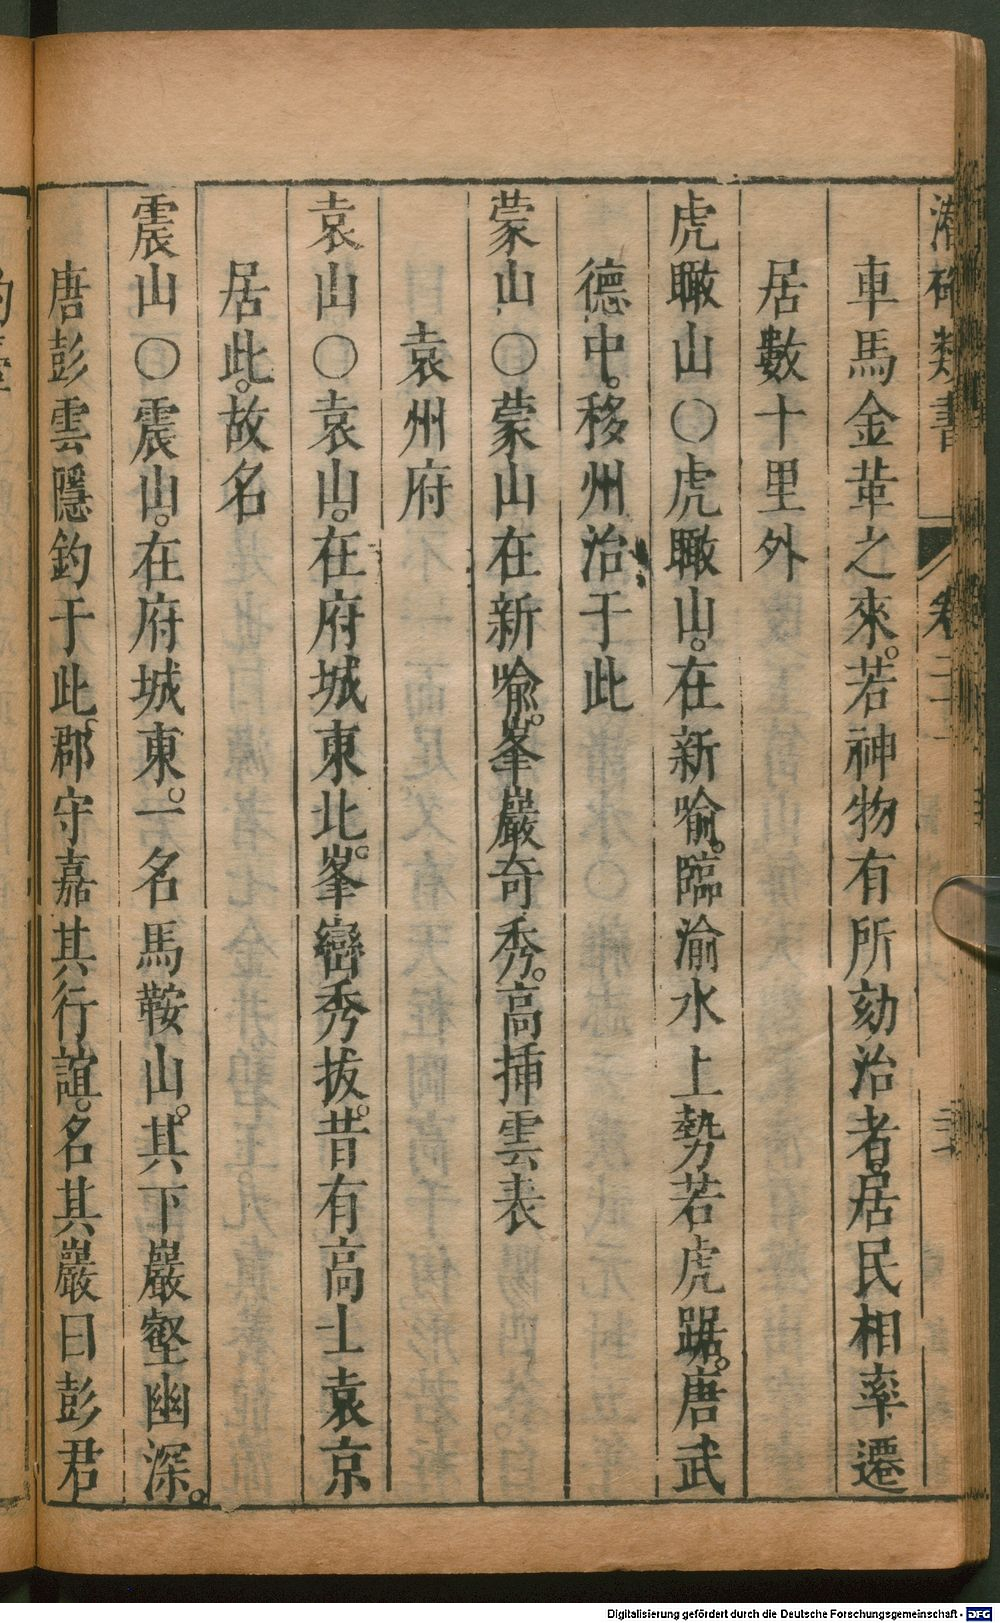 潛確類書 卷二十
車馬金革之來。若神物有所劾治者。居民相率遷
居數十里外
虎瞰山○虎瞰山。在新喻。臨渝水上勢若虎踞。唐武
德中。移州治于此
蒙山○蒙山在新喻。峯巖奇秀。高挿雲表
袁州府
袁山○袁山。在府城東北。峯巒秀拔。昔有高士袁京
居此。故名
震山○震山。在府城東。一名馬鞍山。其下巖壑幽深。
唐彭雲隱釣于此郡守嘉其行誼。名其巖曰彭君
Digitalisierung gefördert durch die Deutsche Forschungsgemeinschaft - DFG